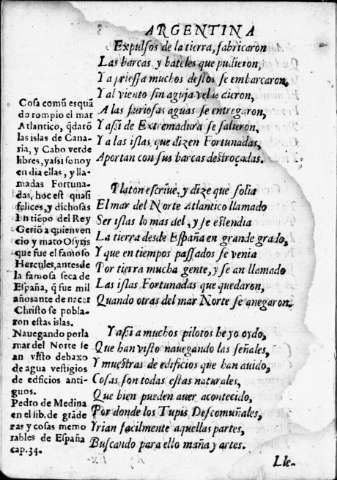 ARGENTINA
Expulsos de la tierra, fabricaron
Las barcas y bateles que pudieron,
Y a priessa muchos destos se embarcaron,
Y al viento sin aguja velas dieron,
A las furiosas aguas se entregaron,
Y assi de Extremadura se salieron,
Y a las islas que dizen Fortunadas,
Aportan con sus barcas destroçadas.
Platon escriue, y dize que solia
El mar del Norte Atlantico llamado
Ser islas lo mas del, y se estendia
La tierra desde España en grande grado,
Y que en tiempos passados se venia
Por tierra mucha gente, y se an llamado
Las islas Fortunadas que quedaron,
Quando otras del mar Norte se anegaron.
Y assi a muchos pilotos he yo oydo,
Que han visto nauegando las señales,
Y muestras de edificios que han auido,
Cosas son todas estas naturales,
Que bien pueden auer acontecido,
Por donde los Tupis Descomuñales,
Yrian facilmente aquellas partes,
Buscando para ello maña y artes.
Cosa comũ es quã
do rompio el mar
Atlantico, q̃darõ
las islas de Cana-
ria, y Cabo verde
libres, y assi son oy
en dia ellas, y lla-
madas Fortuna-
das, hoc est quasi
felices, y dichosas
En tiẽpo del Rey
Geriõ a quien ven
cio y mato Osyris
que fue el famoso
Hercules, antes de
la famosa seca de
España, q̃ fue mil
años ante de nacer
Christo se pobla-
ron estas islas.
Nauegando por la
mar del Norte se
an visto debaxo
de agua vestigios
de edificios anti-
guos.
Pedro de Medina
en el lib. de grãde
zas y cosas memo
rables de España
cap. 34.